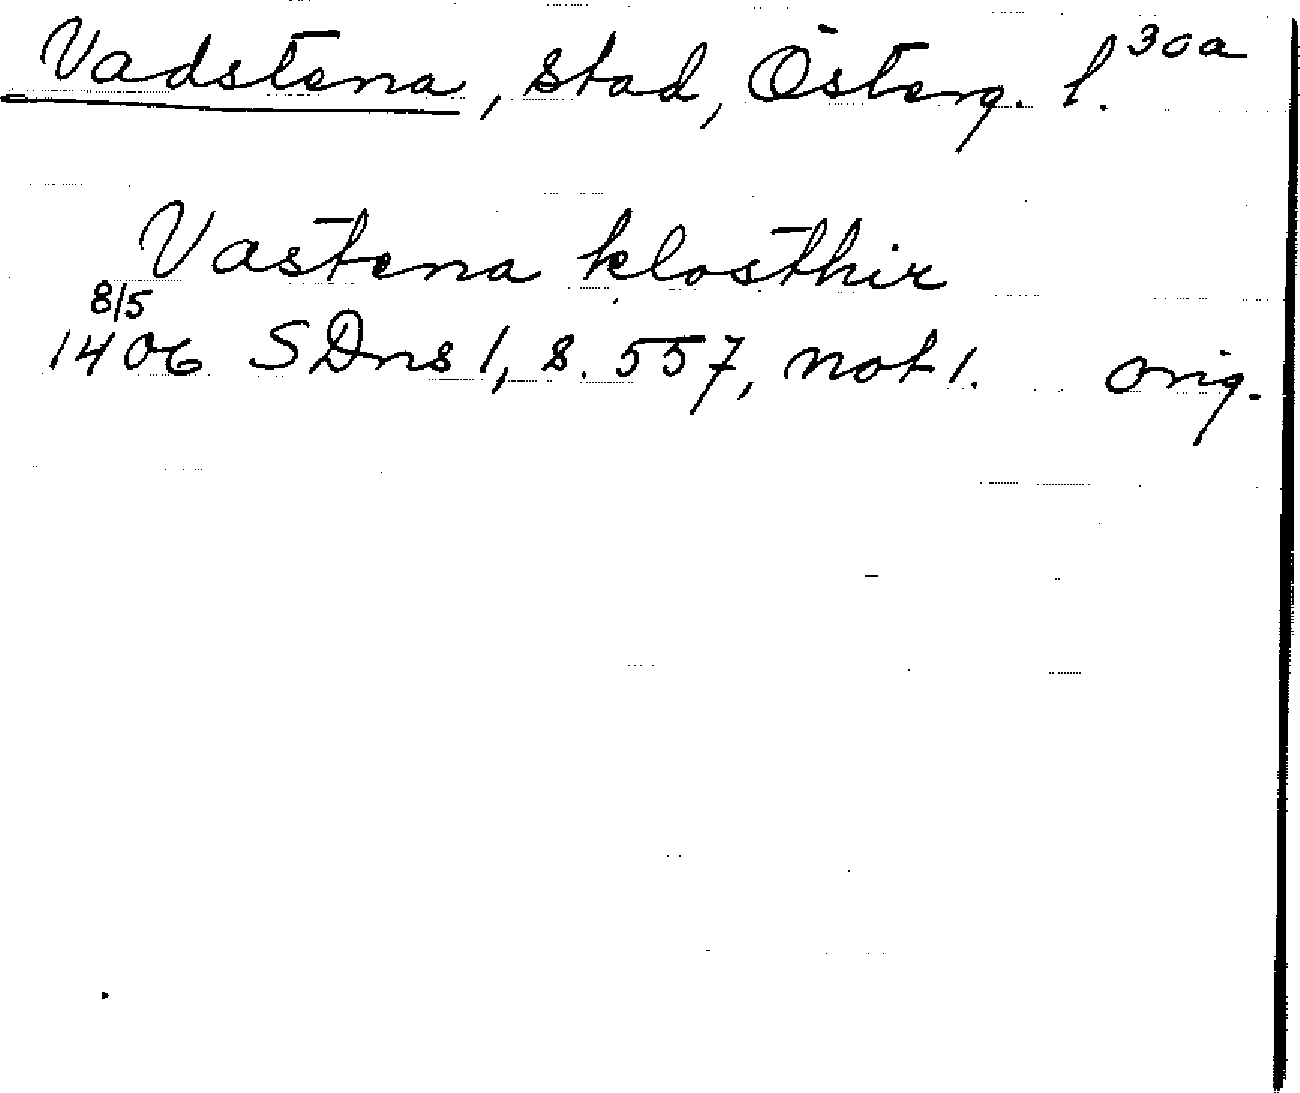 Vadstena, stad, Österg. l. 30a
Vastena klosthir
8/5
1406 SDns 1, s. 557, not 1. orig.